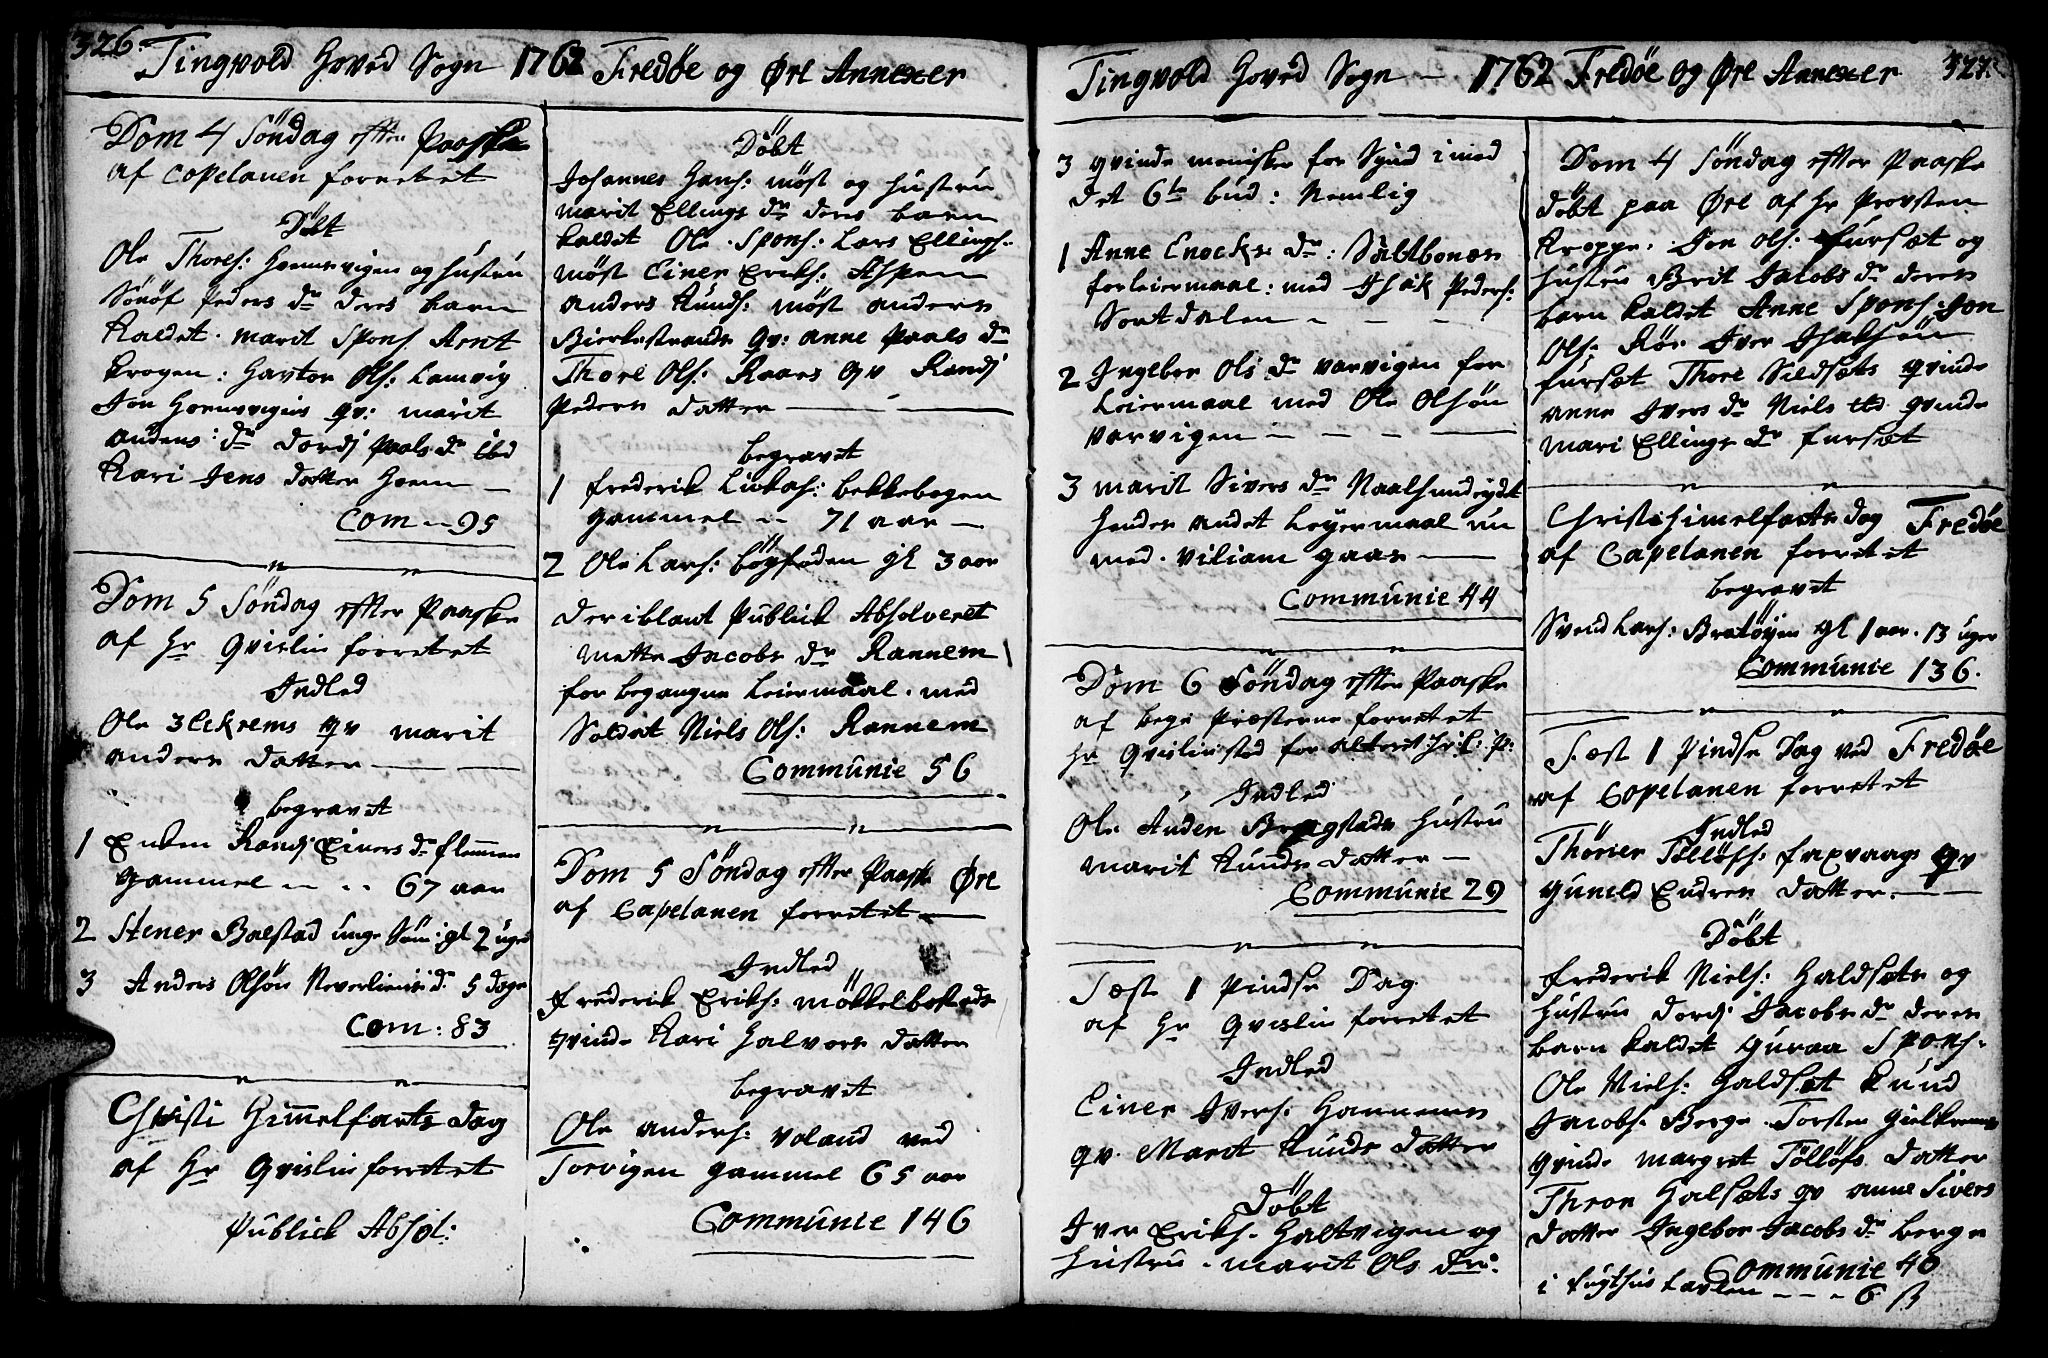 326. Tingvold Hoved Sogn 1762 Fredøe og Øre Annexer
Dom 4 Söndag efter Paaske
af Copelanen forretet
Döbt
Ole Thores: Hoemsvigen og hustru
Peders dr deres barn
kaldet. marit Spons Arnt
krogen: Havtor Ols: Lamvig
Jon Hoemsvigens qv: marit
Andens: dr Dordj Paals dr ibd
Kari Jens datter Hoem —
Com -- 95
Dom 5 Söndag efter Paaske
af Hr Qvislin forretet
Indled
Ole Eckrems qv marit
anders datter
begravet
1 Enken Randj Einers dr flemmen
gammel -- -- 67 aar
2 Stener Balstad unge Sön: gl 2 uger
3 Anders Olsön 5 dage
Com: 83
Christi Himmelfarts dag
af Hr Qvislin forretet
Publick Absol:
Döbt
Johannes Hans: möst og hustru
marit Ellings dr deres barn
kaldet Ole. Spons: Lars Ellings:
möst Einer Eriks: Aspen
anders Knuds: möst anders
Bierkestrands qv: anne Paals dr
Thore Ols: Raars qv Randj
Peders datter
begravet
1 frederik Lukas: bekkebogen
gammel -- 71 aar —
2 Ole Lars: bögfoden gl 3 aar
der iblant Publick Absolveret
mette Jacobs dr Rannem 1
for begangne Leiermaal. med
Soldat Niels Ols: Rannem
Communie 56
Dom 5 Söndag efter Paaske Øre
af Capelanen forretet
Indled
frederik Eriks: möklebosteds
qvinde Kari Halvors datter
begravet
Ole anders: Voland ved
Torvigen gammel 65 aar
Communie 146
Tingvold Hoved Sogn — 1762 Fredøe og Øre Annexer 327.
3 qvinde meniske for Synd imod
det 6te bud: Nemlig
1 Anne Enocks dr: Saltbones
for leiermaal: med Isak Peders:
Sortdalen
2 Ingebor Ols dr varvigen for
Leiermaal med Ole Olsön
varvigen
3 marit Sivers dr Naalsundeydet
hendes andet Leyermaal nu
med. viliam gaas
Communie 44
Dom 6 Söndag efter Paaske
af bege Præsterne forretet
Hr Qvislin stod for alteret
Indled
Ole Auden Bergstads hustru
marit Knuds datter —
Communie 29
Fæst 1 Pindse Dag
af Hr Qvislin forretet
Indled
Einer Ivers: Hannemes
qv. Marit Knuds datter
Döbt
Iver Eriks. Haltvigen og
hustru. marit Ols dr:
Dom 4 Söndag efter Paaske
döbt paa Øre af Hr Provsten
Kroppe. Jon Ols: fursæt og
hustru Brit Jacobs dr deres
barn kaldet Anne Spons: Jon
Ols: Röe Iver Isaksön
fursæt Thore Sildsæts qvinde
anne Ivers dr Niels ibd qvinde
mari Ellings dr fursæt
Christi himelfarts dag Fredøe
af Capelanen forretet
begravet
Svend Lars: Bratöyen gl 1 aar. 13 uger
Communie 136.
Fæst 1 Pindse Dag ved Fredøe
af Copelanen forretet
Indled
Thörier Tölløfs: faxvaags qv
guneld Endres datter.
Döbt
frederik Niels: Haldsets og
hustru Dordj Jacobs dr deres
barn kaldet guraa Spons.
Ole Niels: Haldset Knud
Jacobs. Berge. Torsten gielkrems
qvinde margret Tölløfs datter
Thron Halsæts qv anne Sivers
datter Ingebor Jacobs dr berge
Communie 40
i Fugthus tavlen - - - 6 ß